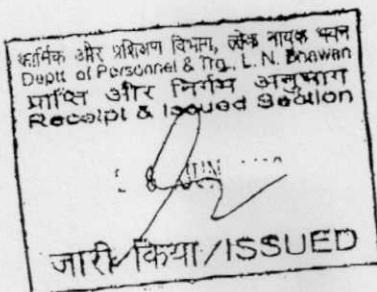 कार्मिक और प्रशिक्षण विभाग, लोक नायक भवन
Deptt of Personnel & Trg., L. N. Bhawan
प्राप्ति और निर्गम अनुभाग
Receipt & Issued Section
JUN
जारी किया/ISSUED